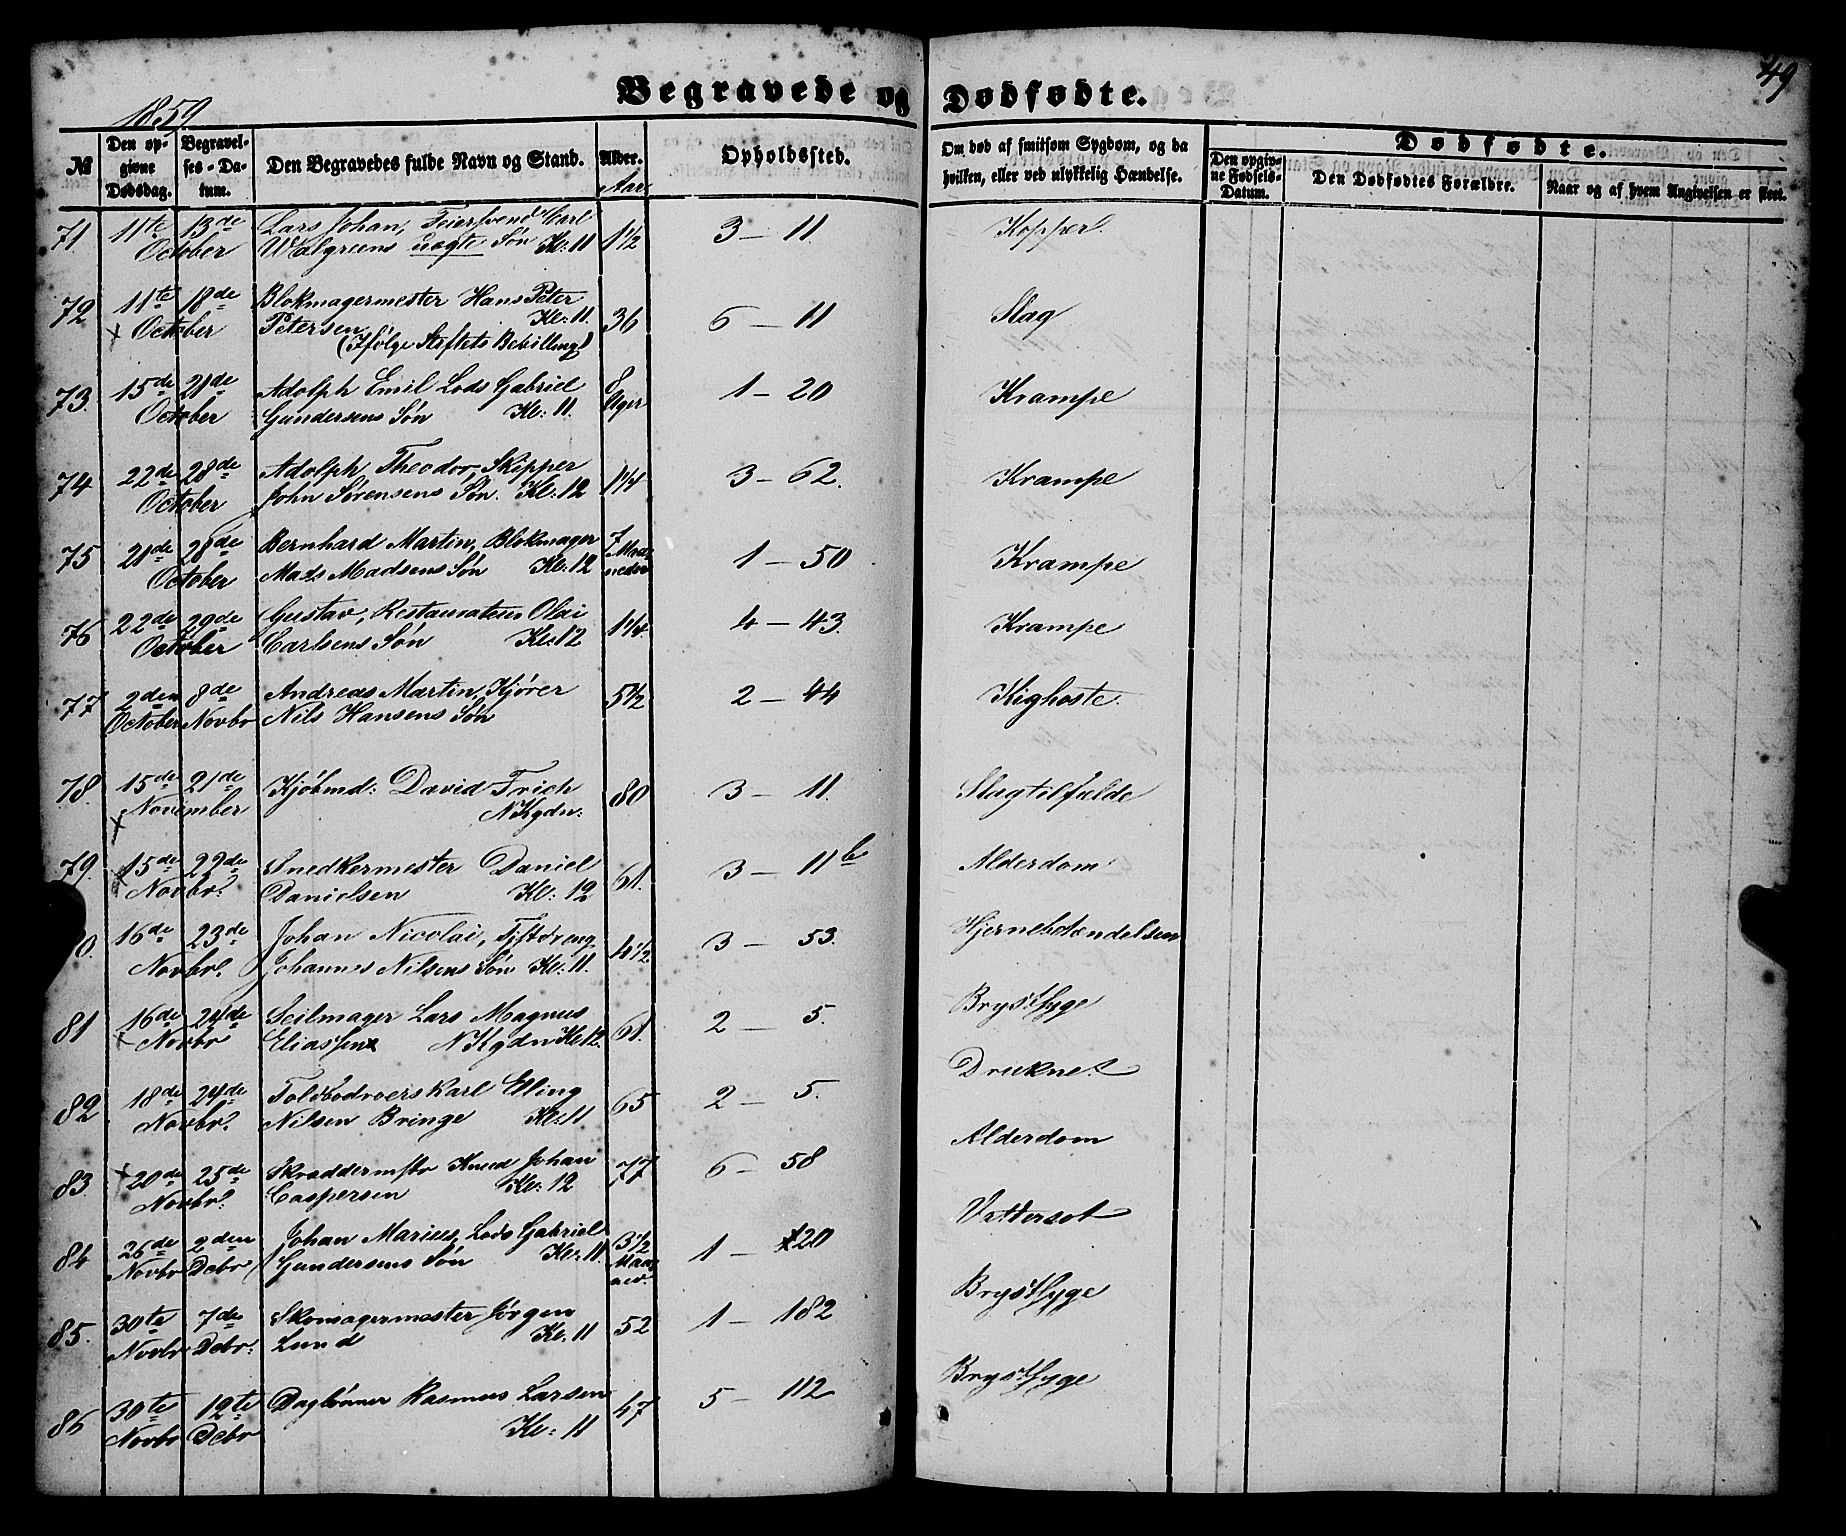 Begravede og Dødfødte.
49
1859
№
Den opgivne Dødsdag.
Begravelses-Datum.
Den Begravedes fulde Navn og Stand.
Alder.
Aar
Opholdssted.
Om død af smitsom Sygdom, og da hvilken, eller ved ulykkelig Hændelse.
Dødfødte.
Den opgivne Fødsels-Datum.
Den Dødfødtes Forældre.
Naar og af hvem Angivelsen er skeet.
71. 11te 13de Lars Johan, Feiersvend Carl 1½ 3 – 11. Kopper.
October Walgreens uægte Søn Kl: 11
72 11te 18de Blokmagermester Hans Peter 36 6 – 11 Slag
October Petersen Kl: 11.
(Ifølge Stiftets Bevilling)
73. 15de 21de Adolph Emil Lods Gabriel 8 Uger 1 – 20 Krampe
October Gundersens Søn Kl: 11.
74 22de 28de Adolph Theodor, Skipper 1¼ 3 – 62. Krampe
October John Sørensens Søn. Kl: 12
75 21de 28de Bernhard Martin, Blokmager 7 Maaneder 1 – 50 Krampe
October Mads Madsens Søn Kl: 12
76 22de 29de Gustav, Restaurateur Olai 1¼ 4 – 43. Krampe
October Carlsens Søn Kl: 12
77 2den 8de Andreas Martin, Kjører 5½ 2 – 44 Kighoste.
October Novbr Nils Hansens Søn
78. 15de 21de Kjøbmd: David Frich 80 3 – 11. Slagtilfælde
November N Kgdn:
79. 15de 22de Snedkermester Daniel 61. 3 – 11b Alderdom
Novbr. Danielsen Kl: 12
0. 16de 23de Johan Nicolai, 4½ 3 – 53. Hjernebetændelsen
Novbr. Johannes Nilsens Søn Kl: 11.
81 16de 24de Seilmager Lars Magnus 61. 2 – 5. Brystsyge
Novbr Eliassen N Kgdn Kl 12.
82 18de 24de Toldbodroerskarl Elling 65 2 – 5. Druknet
Novbr. Nilsen Bringe Kl: 11
83. 20de 25de Skræddermstr Knud Johan 77 6 – 58 Alderdom
Novbr. Caspersen Kl: 12
84 26de 2den Johan Marius, Lods Gabriel 3½ Maaned. 1 – 20 Vattersot
Novbr Debr Gundersens Søn Kl: 11.
85. 30te 7de Skomagermester Jørgen 52 1 – 182 Brystsyge
Novbr Debr. Lund Kl: 11
86 30te 12te Daglønner Rasmus Larsen 47 5 – 112 Brystsyge
Novbr Debr Kl: 11